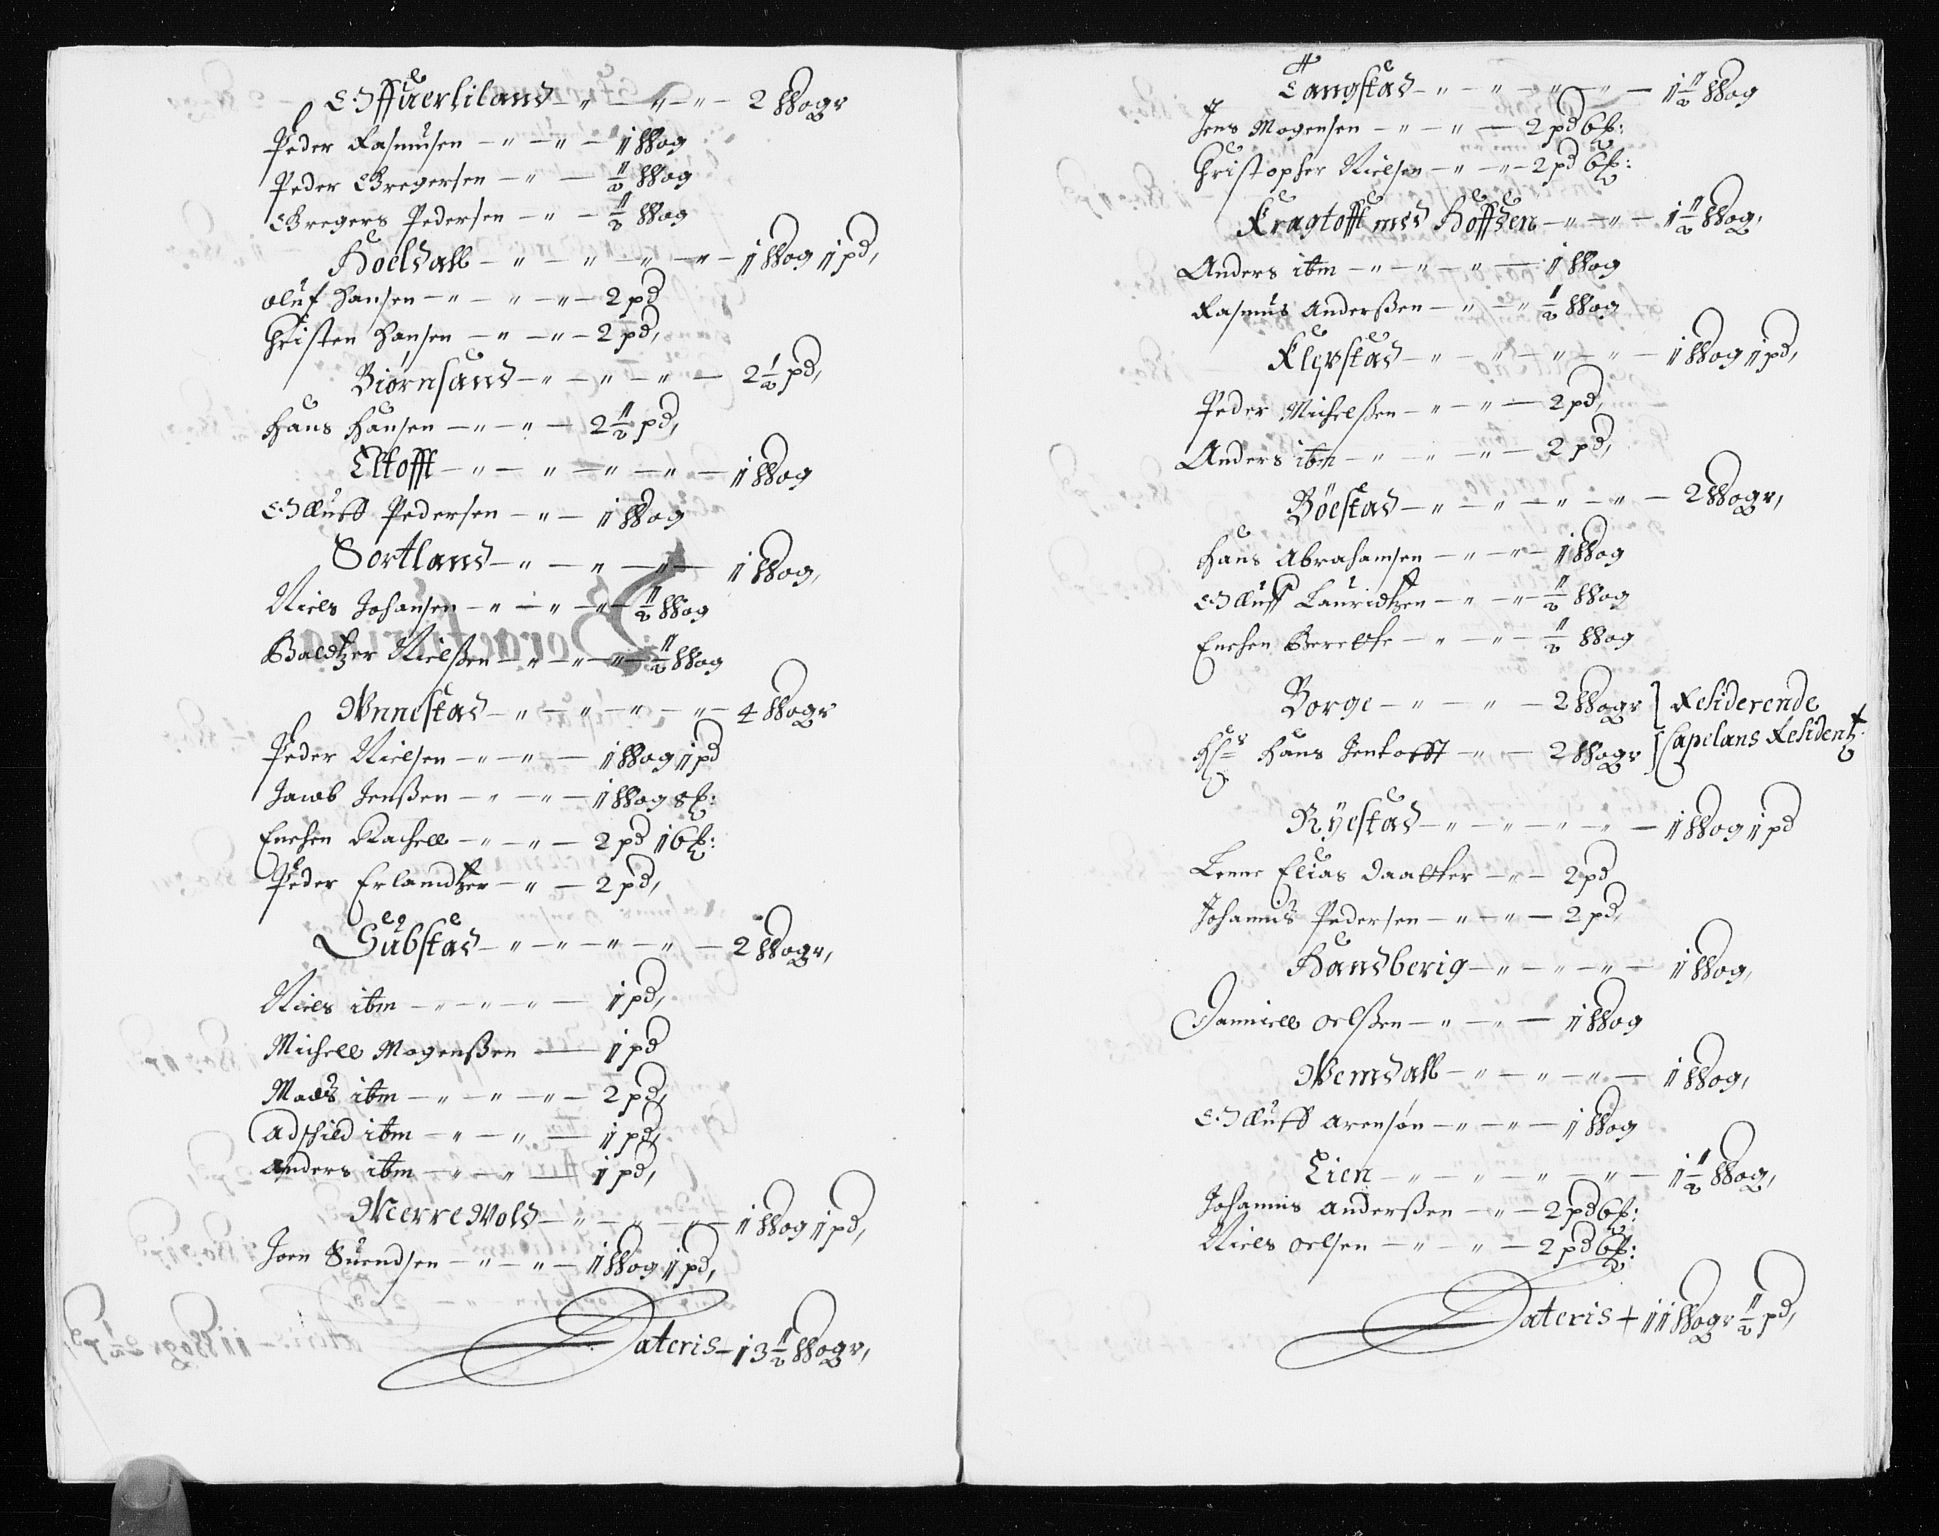 Offuerliland - " - " - " - 2 Wogr
Peder Rasmusen - " - " - 1 Wog
Peder Gregersen - " - ½ Wog
Gregers Pedersen - " - ½ Wog
Hoeldall - " - " - " - " - 1 Wog 1 pd,
Oluf Hansen - " - " - " - 2 pd
Christen Hansen - " - " - 2 pd,
Biørnsand - " - " - " - 2½ pd,
Hans Hansen - " - " - 2½ pd,
Eltofft - " - " - " - " - 1 Wog
Olluff Pedersen - " - 1 Wog
Sortland - " - " - " - 1 Wog,
Niels Johansen - " - " - " - ½ Wog
Baldtzer Nielßen - " - " - " - ½ Wog
Wnnestad - " - " - " - " - 4 Wogr
Peder Nielsen - " - " - 1 Wog 1 pd
Jacob Jenßen - " - " - 1 Wog 8 ℔:
Enchen Rachell - " - " - 2 pd 16 ℔:
Peder Erlandtzer - " - 2 pd,
Substad - " - " - " - " - 2 Wogr,
Niels ibm - " - " - " - 1 pd,
Michell Mogenßen - 1 pd
Mads ibm - " - " - " - 2 pd,
Adskild ibm - " - " - 1 pd,
Anders ibm - " - " - 1 pd,
Merre Wold - " - " - " - 1 Wog 1 pd,
Joen Suendsen - " - " - 1 Wog 1 pd,
Lateris - 13½ Wogr,
Tangstad - " - " - " - " - 1½ Wog
Jens Mogensen - " - " - 2 pd 6 ℔:
Christopher Nielsen - " - " - 2 pd 6 ℔:
Kragtofft med Hoffden - " - " - 1½ Wog,
Anders ibm - " - " - " - 1 Wog
Rasmus Anderßen - " - " ½ Wog
Klepstad - " - " - " - " - 1 Wog 1 pd,
Peder Michelßen - " - " - 2 pd,
Anders ibm - " - " - " - 2 pd,
Böestad - " - " - " - " - 2 Wogr,
Hans Abrahamsen - " - " - 1 Wog
Olluff Lauridtzen - " - " - ½ Wog
Enchen Berette - " - " - ½ Wog
Borge - " - " - 2 Wogr } Residerende
Hans Jentofft - " - 2 Wogr } Capelans Residentz.
Ryestad - " - " - " - " - 1 Wog 1 pd
Lenne Elias Daatter - " - 2 pd
Johannis Pedersen - " - " - 2 pd,
Handberig - " - " - " - 1 Wog,
Danniell Oelßen - " - " - 1 Wog
Wemdall - " - " - " - 1 Wog,
Olluff Arensøn - " - " - 1 Wog
Lien - " - " - " - " - 1½ Wog,
Johannis Anderßen - " - 2 pd 6 ℔:
Niels Oelsen - " - " - 2 pd 6 ℔:
Lateris + 11 Wogr ½ pd,